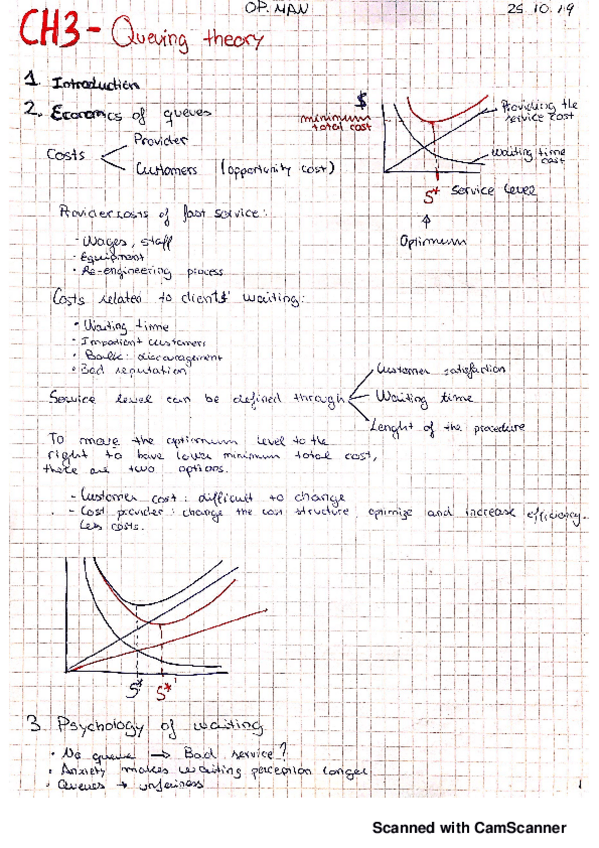 OP. MAN
25.10.19
CH3- Queuing theory
1. Introduction
2. Economics of queues
Costs
Provider
Customers (opportunity cost)
$
minimum
total cost
Providing the
service cost
Waiting time
cost
S* Service level
Optimum
Provider costs of fast service:
- Wages, staff
- Equipment
- Re-engineering process
Costs related to clients' waiting:
• Waiting time
• Impatient customers
• Balk: discouragement
• Bad reputation
Service level can be defined through
Customer satisfaction
Waiting time
Lenght of the procedure
To move the optimum level to the
right to have lower minimum total cost,
there are two options.
- Customer cost: difficult to change
- Cost provider: change the cost structure, optimize and increase efficiency.
Less costs.
S* S*'
3. Psychology of waiting
• No queue → Bad service?
• Anxiety makes waiting perception longer
• Queues → unfairness
1
Scanned with CamScanner